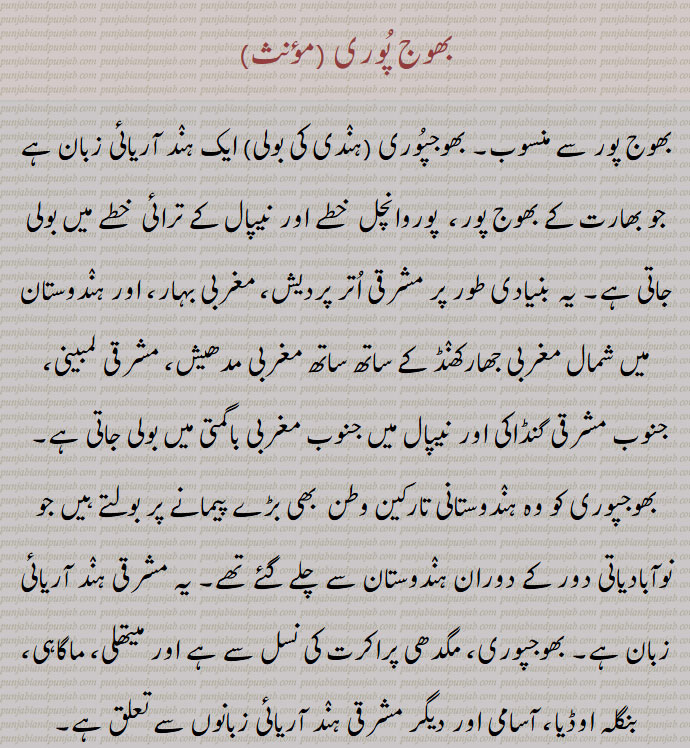 بھوج پُوری (مؤنث)
بھوج پور سے منسوب۔ بھوجپُوری (ہندی کی بولی) ایک ہند آریائی زبان ہے
جو بھارت کے بھوج پور، پوروانچل خطے اور نیپال کے ترائی خطے میں بولی
جاتی ہے۔ یہ بنیادی طور پر مشرقی اُتر پردیش، مغربی بہار، اور ہندوستان
میں شمال مغربی جھارکھنڈ کے ساتھ ساتھ مغربی مدھیش، مشرقی لمبینی،
جنوب مشرقی گنڈاکی اور نیپال میں جنوب مغربی باگمتی میں بولی جاتی ہے۔
بھوجپوری کو وہ ہندوستانی تارکین وطن بھی بڑے پیمانے پر بولتے ہیں جو
نوآبادیاتی دور کے دوران ہندوستان سے چلے گئے تھے۔ یہ مشرقی ہند آریائی
زبان ہے۔ بھوجپوری، مگدھی پراکرت کی نسل سے ہے اور میتھلی، ماگاہی،
بنگلہ اوڈیا، آسامی اور دیگر مشرقی ہند آریائی زبانوں سے تعلق ہے۔